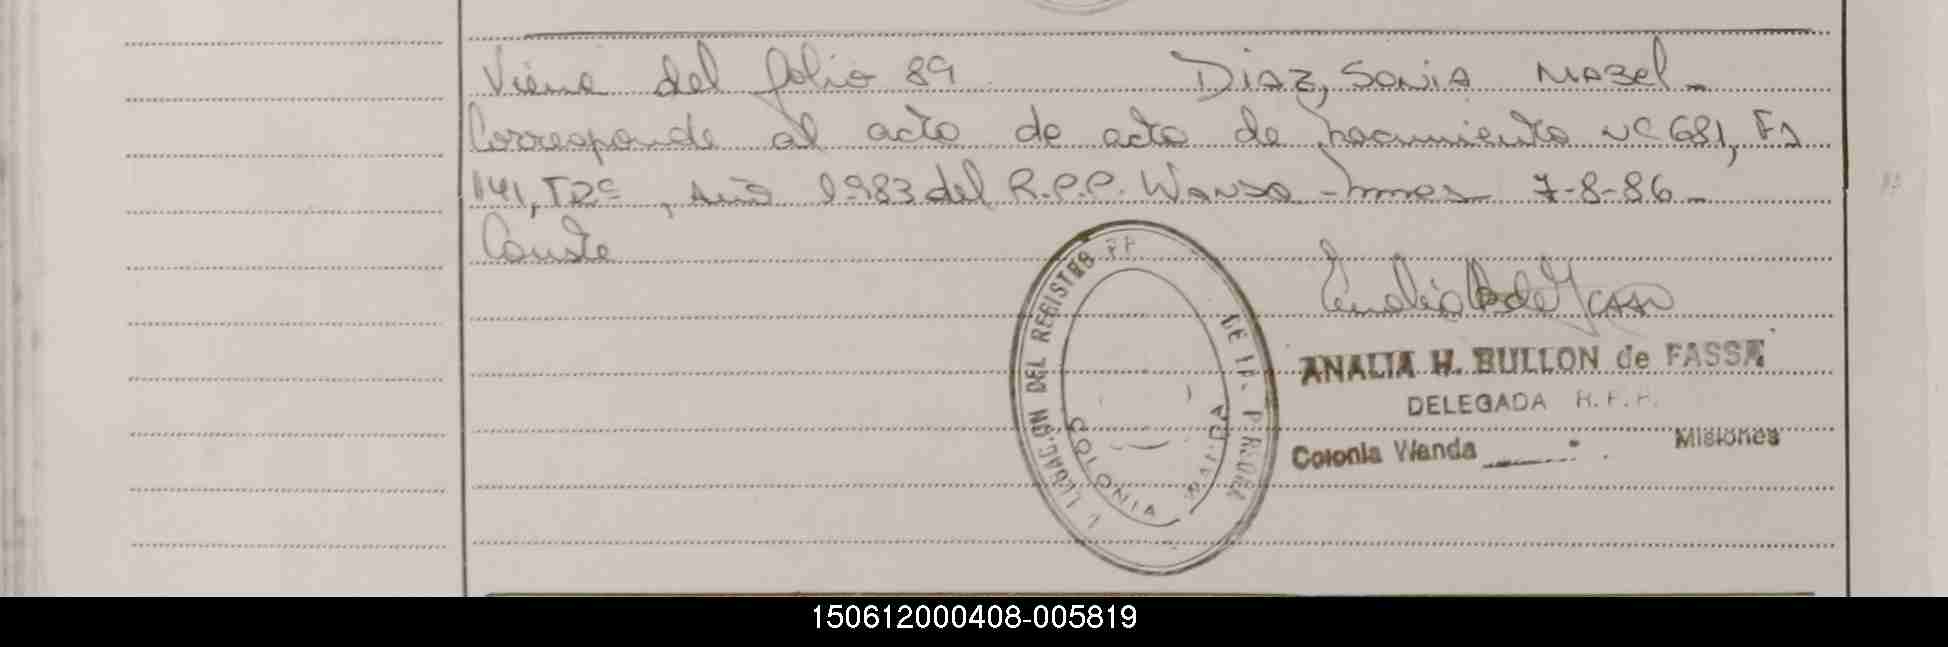 Viene del folio 89 DIAZ, SONIA MABEL -
Corresponde al acto de acta de nacimiento Nº 681, Fº
141, T2º, Año 1983 del R.P.P. Wanda - Mnes 7-8-86 -
Conste
ANALIA H. BULLON de FASSA
DELEGADA R.P.P.
Colonia Wanda Misiones
DEL REGISTRO PP.
DE
COLONIA WANDA
150612000408-005819